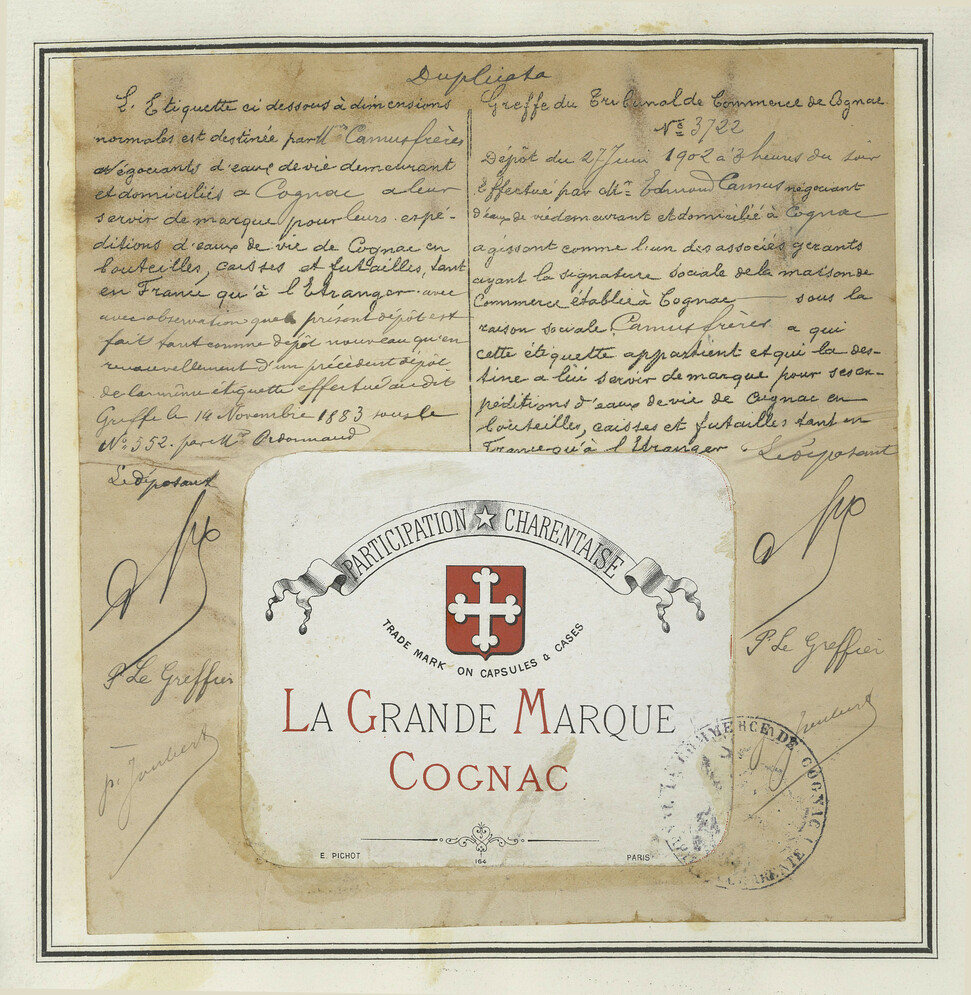 Duplicata
L'Etiquette ci dessous à dimensions
normales est destinée par M.rs Camus frères
négociants d'eaux de vie demeurant
et domiciliés a Cognac a leur
servir de marque pour leurs expé-
ditions d'eaux de vie de Cognac en
bouteilles, caisses et futailles, tant
en France qu'à l'Etranger avec
avec observation que présent dépôt est
fait tant comme dépôt nouveau qu'en
renouvellement d'un précédent dépôt
de la même étiquette effectué au dit
Greffe le 14 Novembre 1883 sous le
N° 552. par Mr
Le déposant
P. Le Greffier
p. Joubert
Greffe du Tribunal de Commerce de Cognac
N° 3722
Dépôt du 27 Juin 1902 à 3 heures du soir
Effectué par Mr. Edmond Camus négociant
d'eaux de vie demeurant et domicilié à Cognac
agissant comme l'un des associés gérants
ayant la signature sociale de la maison de
Commerce établie à Cognac sous la
raison sociale Camus frères a qui
cette étiquette appartient et qui la des-
tine a lui servir de marque pour ses ex-
péditions d'eaux de vie de Cognac en
bouteilles, caisses et futailles tant en
France qu'à l'Etranger Le déposant
P. Le Greffier
Joubert
PARTICIPATION CHARENTAISE
TRADE MARK ON CAPSULES & CASES
LA GRANDE MARQUE
COGNAC
E. PICHOT
164
PARIS
COMMERCE DE COGNAC